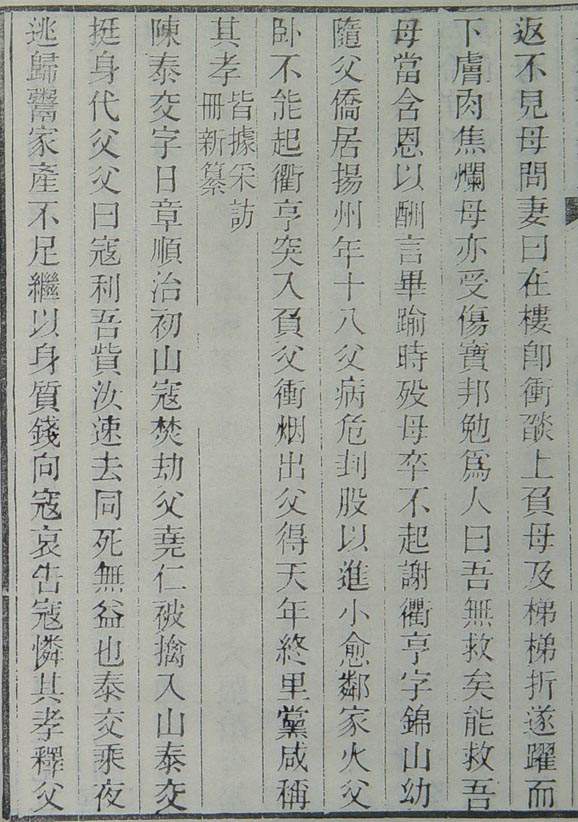 返不見母問妻曰在樓卽衝燄上負母及梯梯折遂躍而
下膚肉焦爛母亦受傷寶邦勉爲人曰吾無救矣能救吾
母當含恩以酬言畢踰時殁母卒不起謝衢亨字錦山幼
隨父僑居揚州年十八父病危刲股以進小愈鄰家火父
卧不能起衢亨突入負父衝烟出父得天年終里黨咸稱
其孝皆據采訪
冊新纂
陳泰交字日章順治初山寇焚劫父堯仁被擒入山泰交
挺身代父父曰寇利吾貲汝速去同死無益也泰交乘夜
逃歸鬻家產不足繼以身質錢向寇哀告寇憐其孝釋父